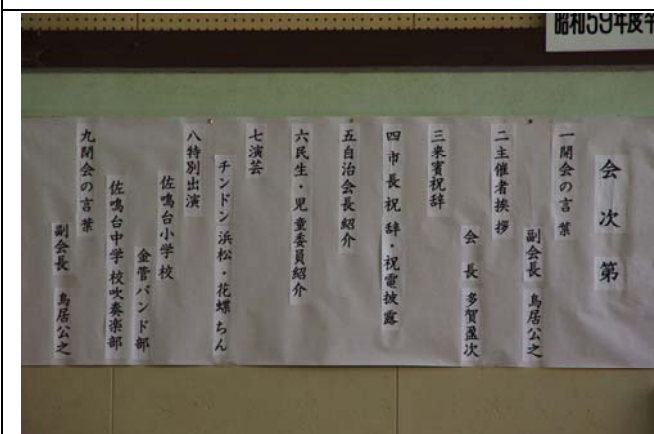 昭和59年度
会次第
一開会の言葉
副会長 鳥居公之
二主催者挨拶
会長 多賀盈次
三来賓祝辞
四市長祝辞・祝電披露
五自治会長紹介
六民生・児童委員紹介
七演芸
チンドン浜松・花蝶ちん
八特別出演
佐鳴台小学校
金管バンド部
佐鳴台中学校吹奏楽部
九閉会の言葉
副会長 鳥居公之